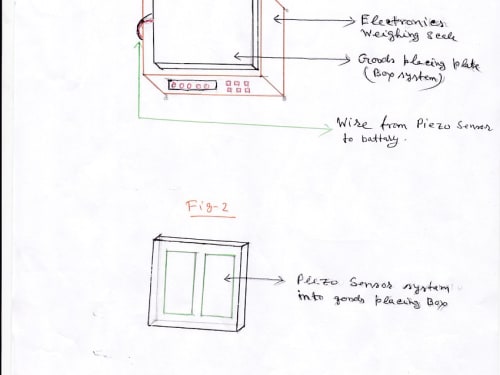 Electronics
Weighing Seele
Goods placing plate
(Box system)
Wire from Piezo Sensor
to battery.
Fig-2
Piezo Sensor system
into goods placing Box